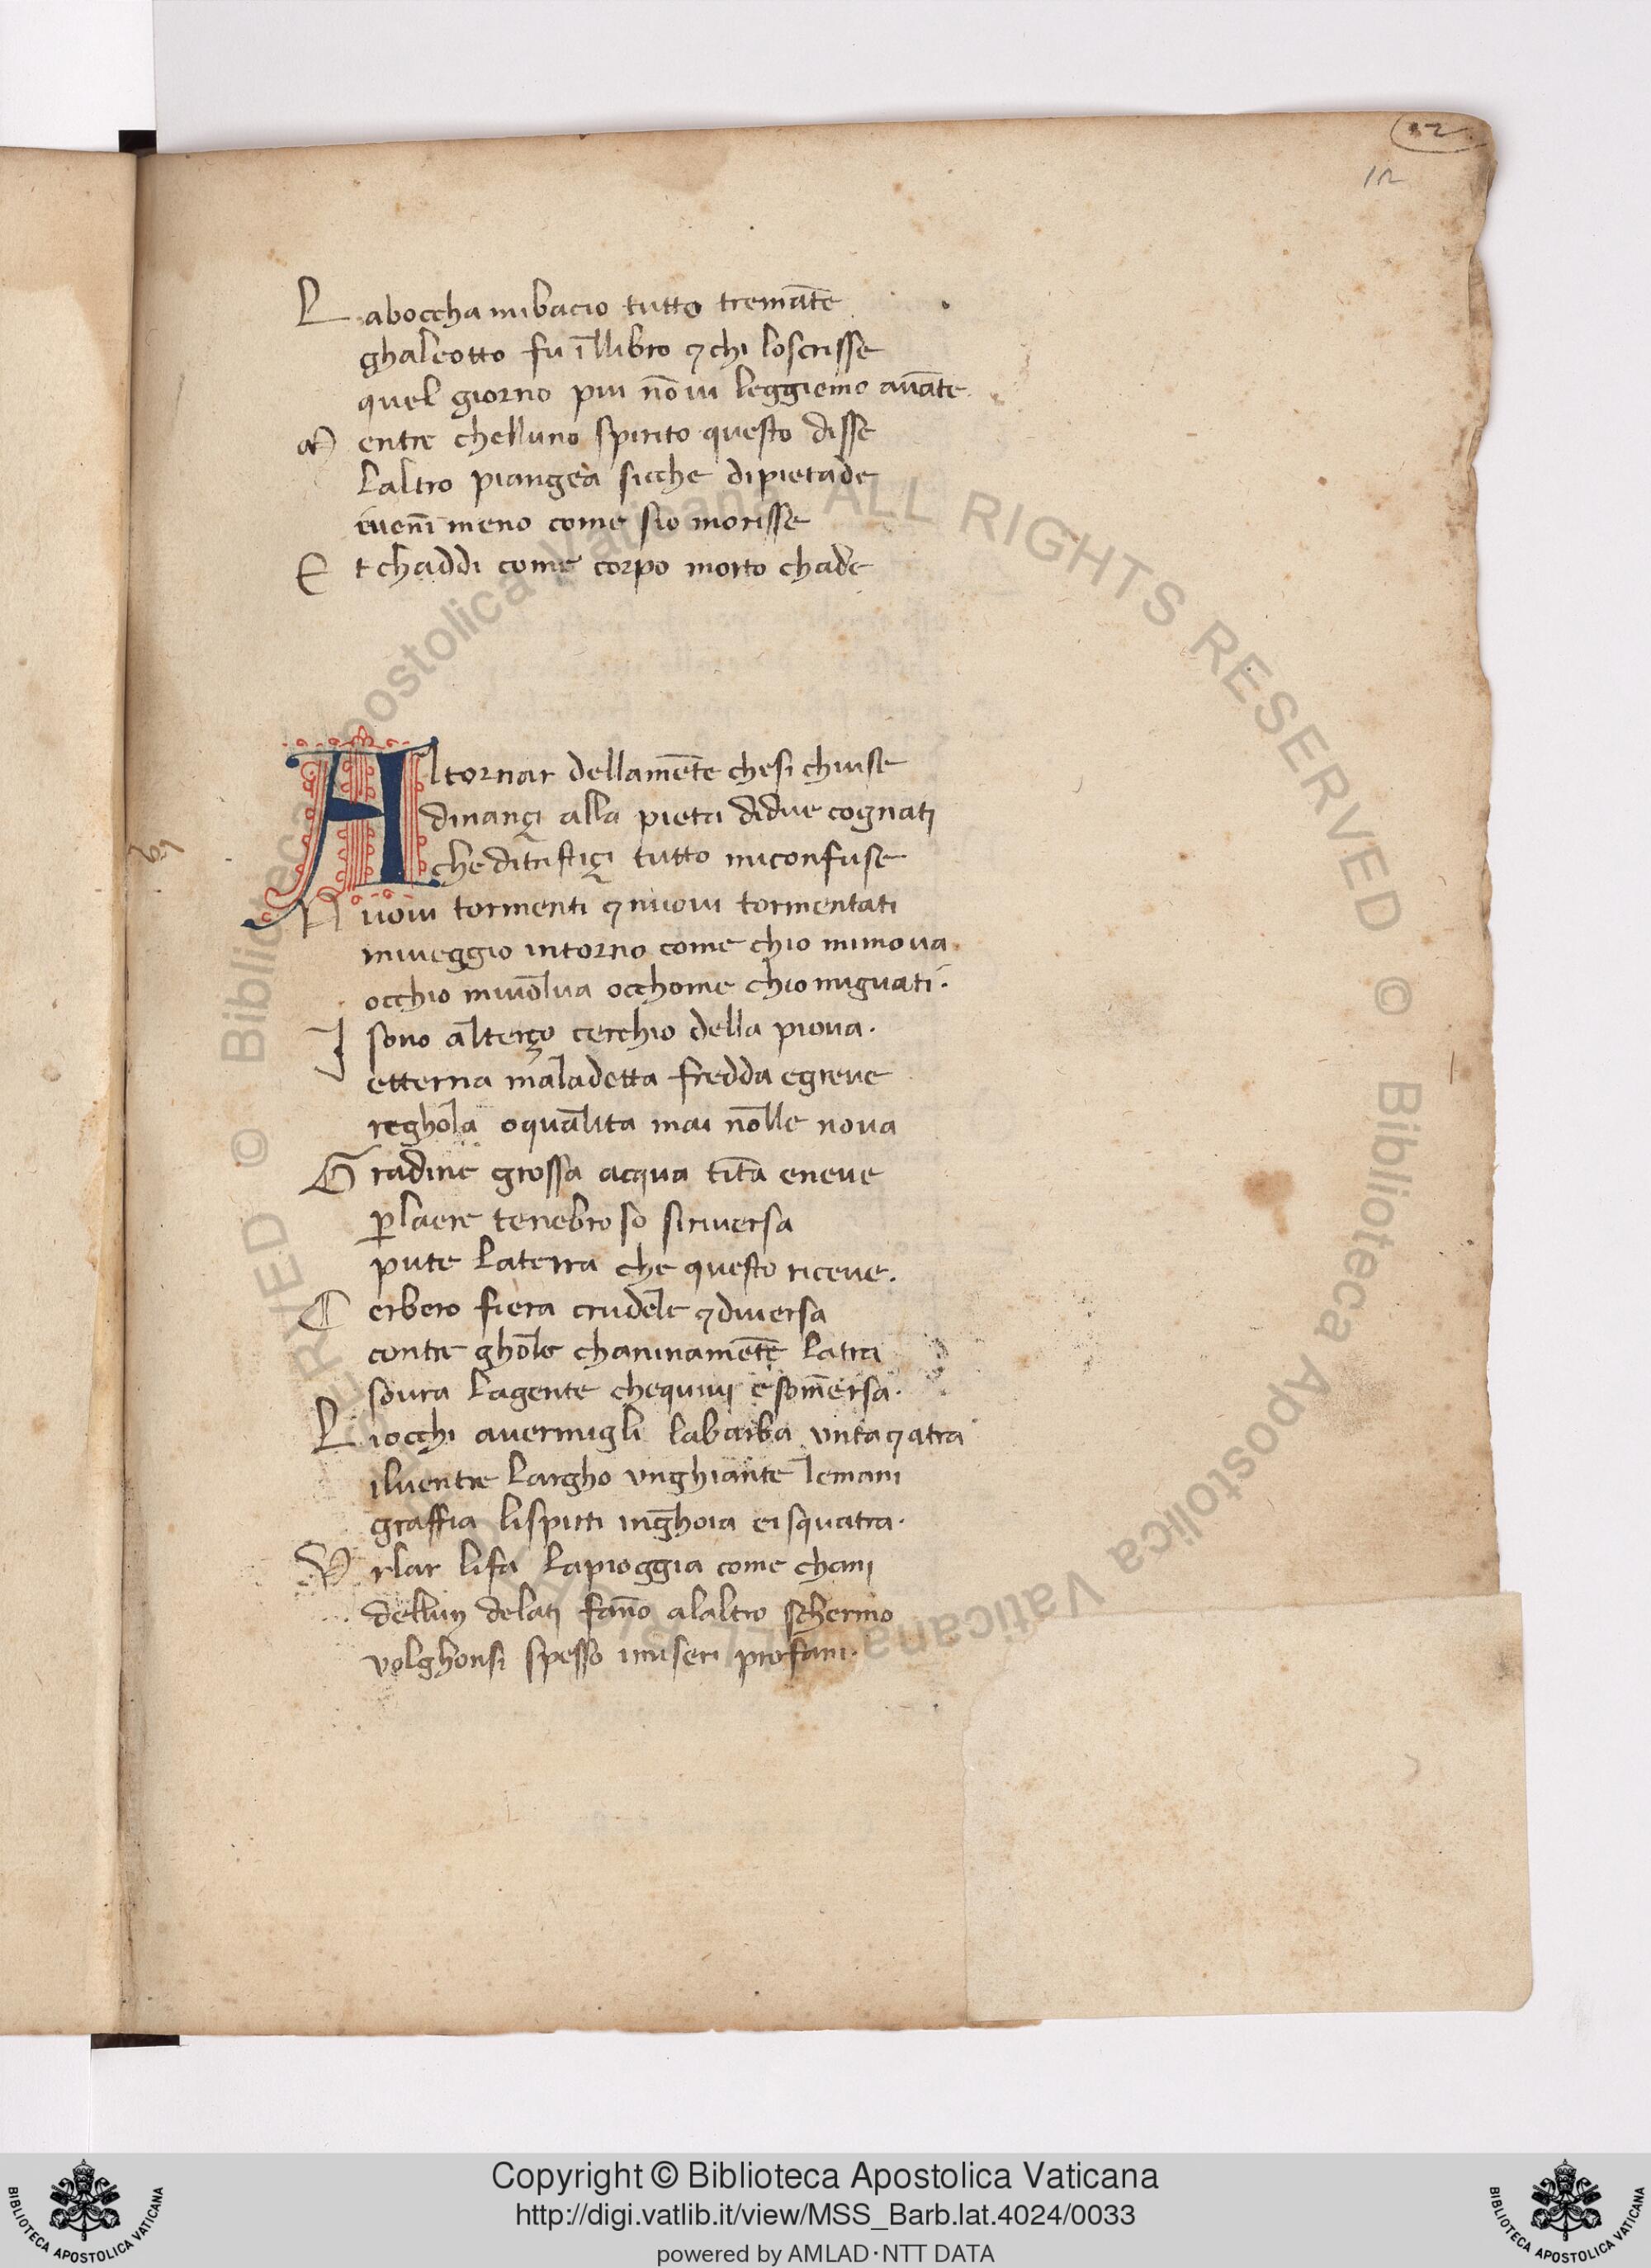 12
12
Laboccha mibacio tutto tremāte
ghaleotto fu īllibro ⁊ chi loscrisse
quel giorno piu nō ui leggiemo auāte.
Mentre chelluno spirito questo disse
laltro piangea sicche dipietade
iuēni meno come sio morisse
Et chaddi come corpo morto chade
Altornar dellamēte chesi chiuse
dinançi alla pieta didue cognati
cheditristiçi tutto miconfuse
Nuoui tormenti ⁊ nuoui tormentati
miueggio intorno come chio mimoua.
occhio miuolua occhome chio miguati.
I sono alterço cerchio della pioua.
etterna maladetta fredda egreue
reghola oqualita mai nolle noua
Gradine grossa acqua tīta eneue
ꝑlaere tenebroso siriuersa
pute laterra che questo riceue.
Cerbero fiera crudele ⁊ diuersa
contre ghole chaninamēte latra
soura lagente chequiui esomersa.
Liocchi auermigli labarba vnta ⁊ atra
iluentre largho vnghiante lemani
graffia lispirti inghoia eisquatra.
Vrlar lifa lapioggia come chani
dellun delati fāno alaltro schermo
volghonsi spesso imiseri profani.
© Biblioteca Apostolica Vaticana ALL RIGHTS RESERVED © Biblioteca Apostolica Vaticana ALL RIGHTS RESERVED
BIBLIOTECA APOSTOLICA VATICANA
Copyright © Biblioteca Apostolica Vaticana
http://digi.vatlib.it/view/MSS_Barb.lat.4024/0033
powered by AMLAD·NTT DATA
BIBLIOTECA APOSTOLICA VATICANA